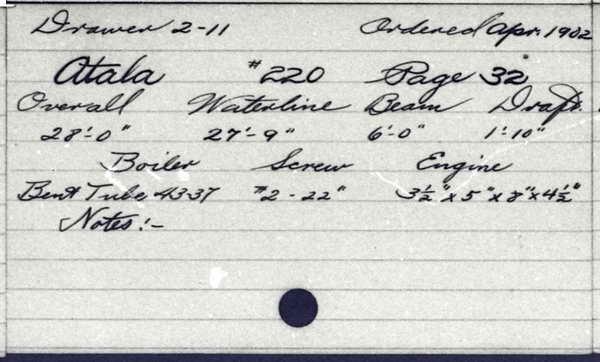 Drawer 2-11 Ordered Apr. 1902
Atala #220 Page 32
Overall Waterline Beam Draft.
28'-0" 27'-9" 6'-0" 1'-10"
Boiler Screw Engine
Bent Tube 43-37 #2 - 22" 3½" x 5" x 8" x 4½"
Notes:-